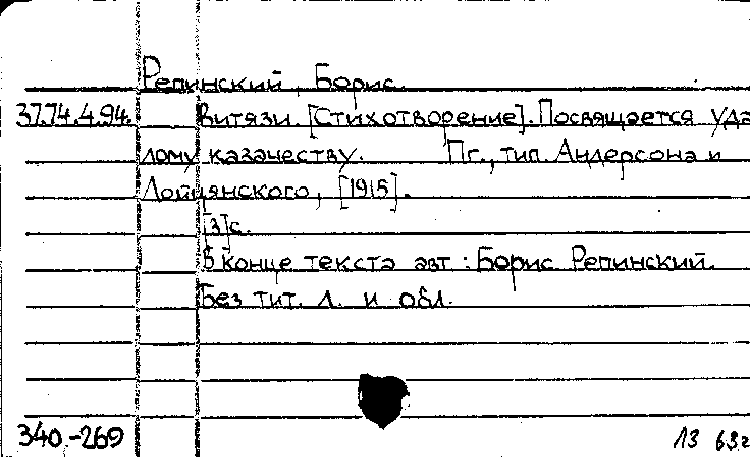 Репинский, Борис.
37.74.4.94. Витязи. [Стихотворение]. Посвящается уда
лому казачеству. Пг., тип. Андерсона и
Лойцянского, [1915].
[3]с.
В конце текста авт: Борис Репинский.
Без тит. л. и обл.
340.-269